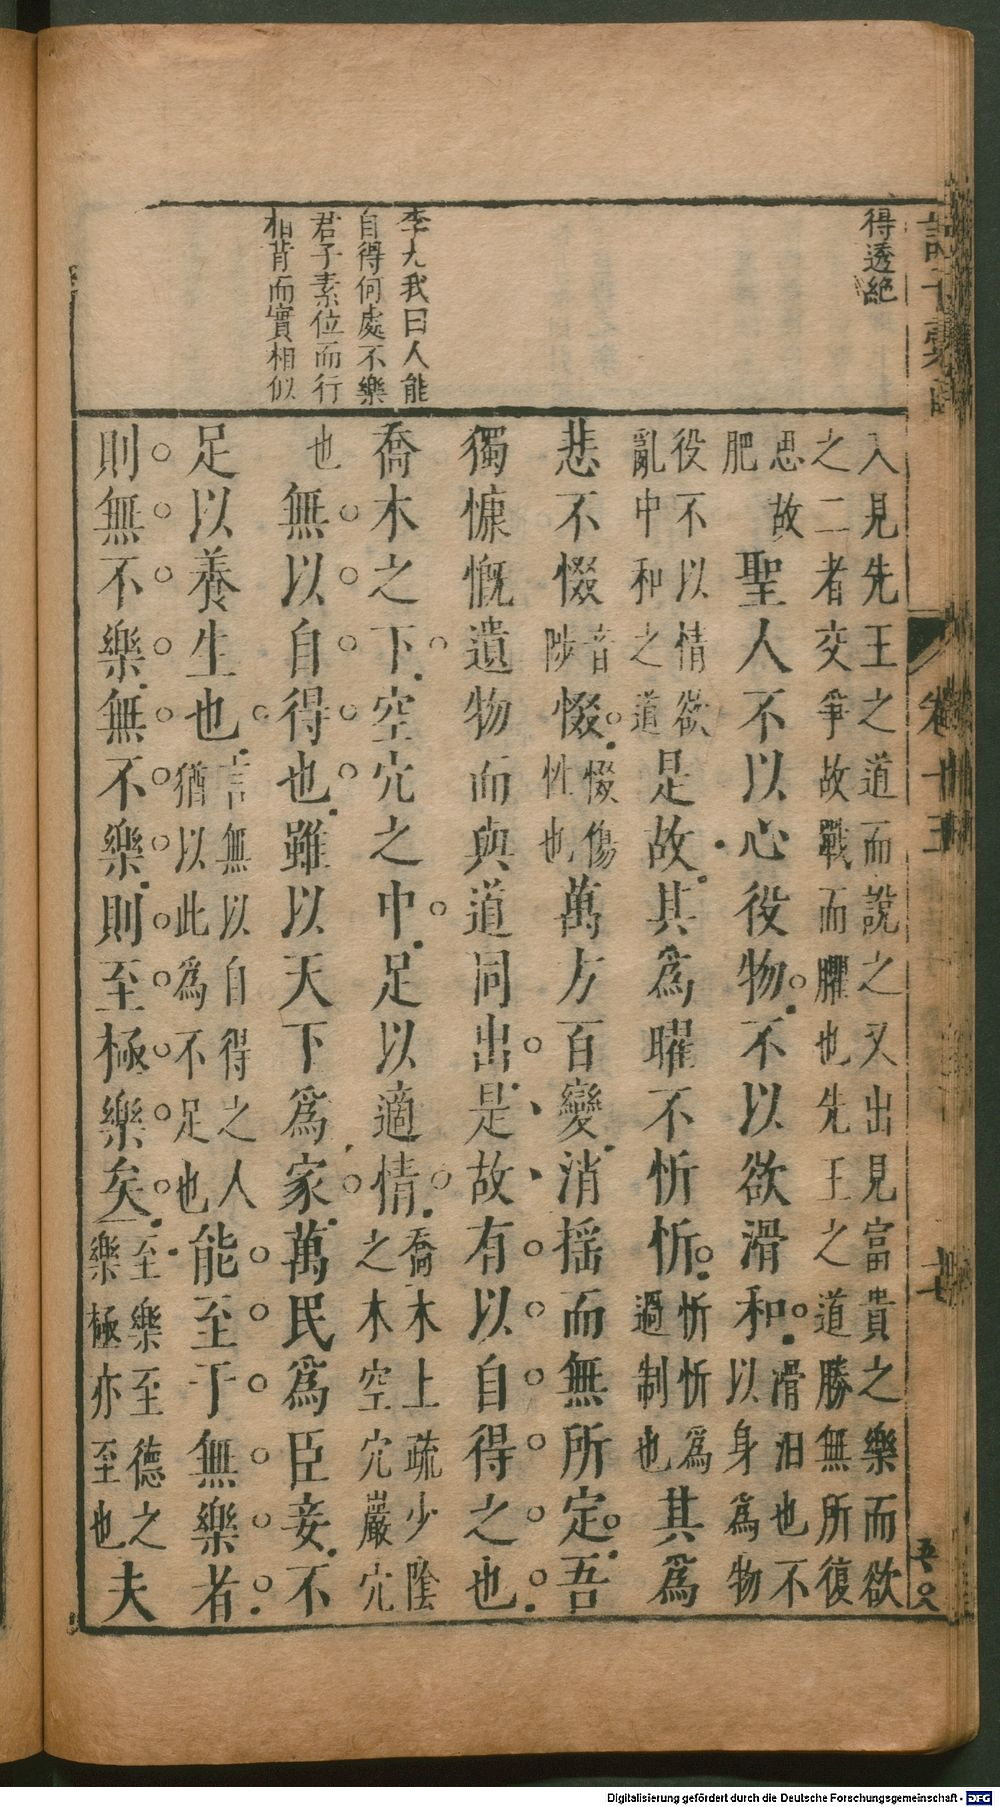 得透絕
李九我曰人能
自得何處不樂
君子素位而行
相背而實相似
入見先王之道而說之又出見富貴之樂而欲
之二者交爭故戰而臞也先王之道勝無所復
思故肥聖人不以心役物不以欲滑和滑汨也不以身為物
役不以情欲亂中和之道是故其爲曜不忻忻忻忻爲過制也其爲
悲不惙音陟惙惙傷性也萬方百變消搖而無所定吾
獨慷慨遺物而與道同出是故有以自得之也
喬木之下空穴之中足以適情喬木上疏少陰之木空穴巖穴
也無以自得也雖以天下爲家萬民爲臣妾不
足以養生也言無以自得之人猶以此爲不足也能至于無樂者
則無不樂無不樂則至極樂矣至樂至德之樂極亦至也夫
Digitalisierung gefördert durch die Deutsche Forschungsgemeinschaft - DFG